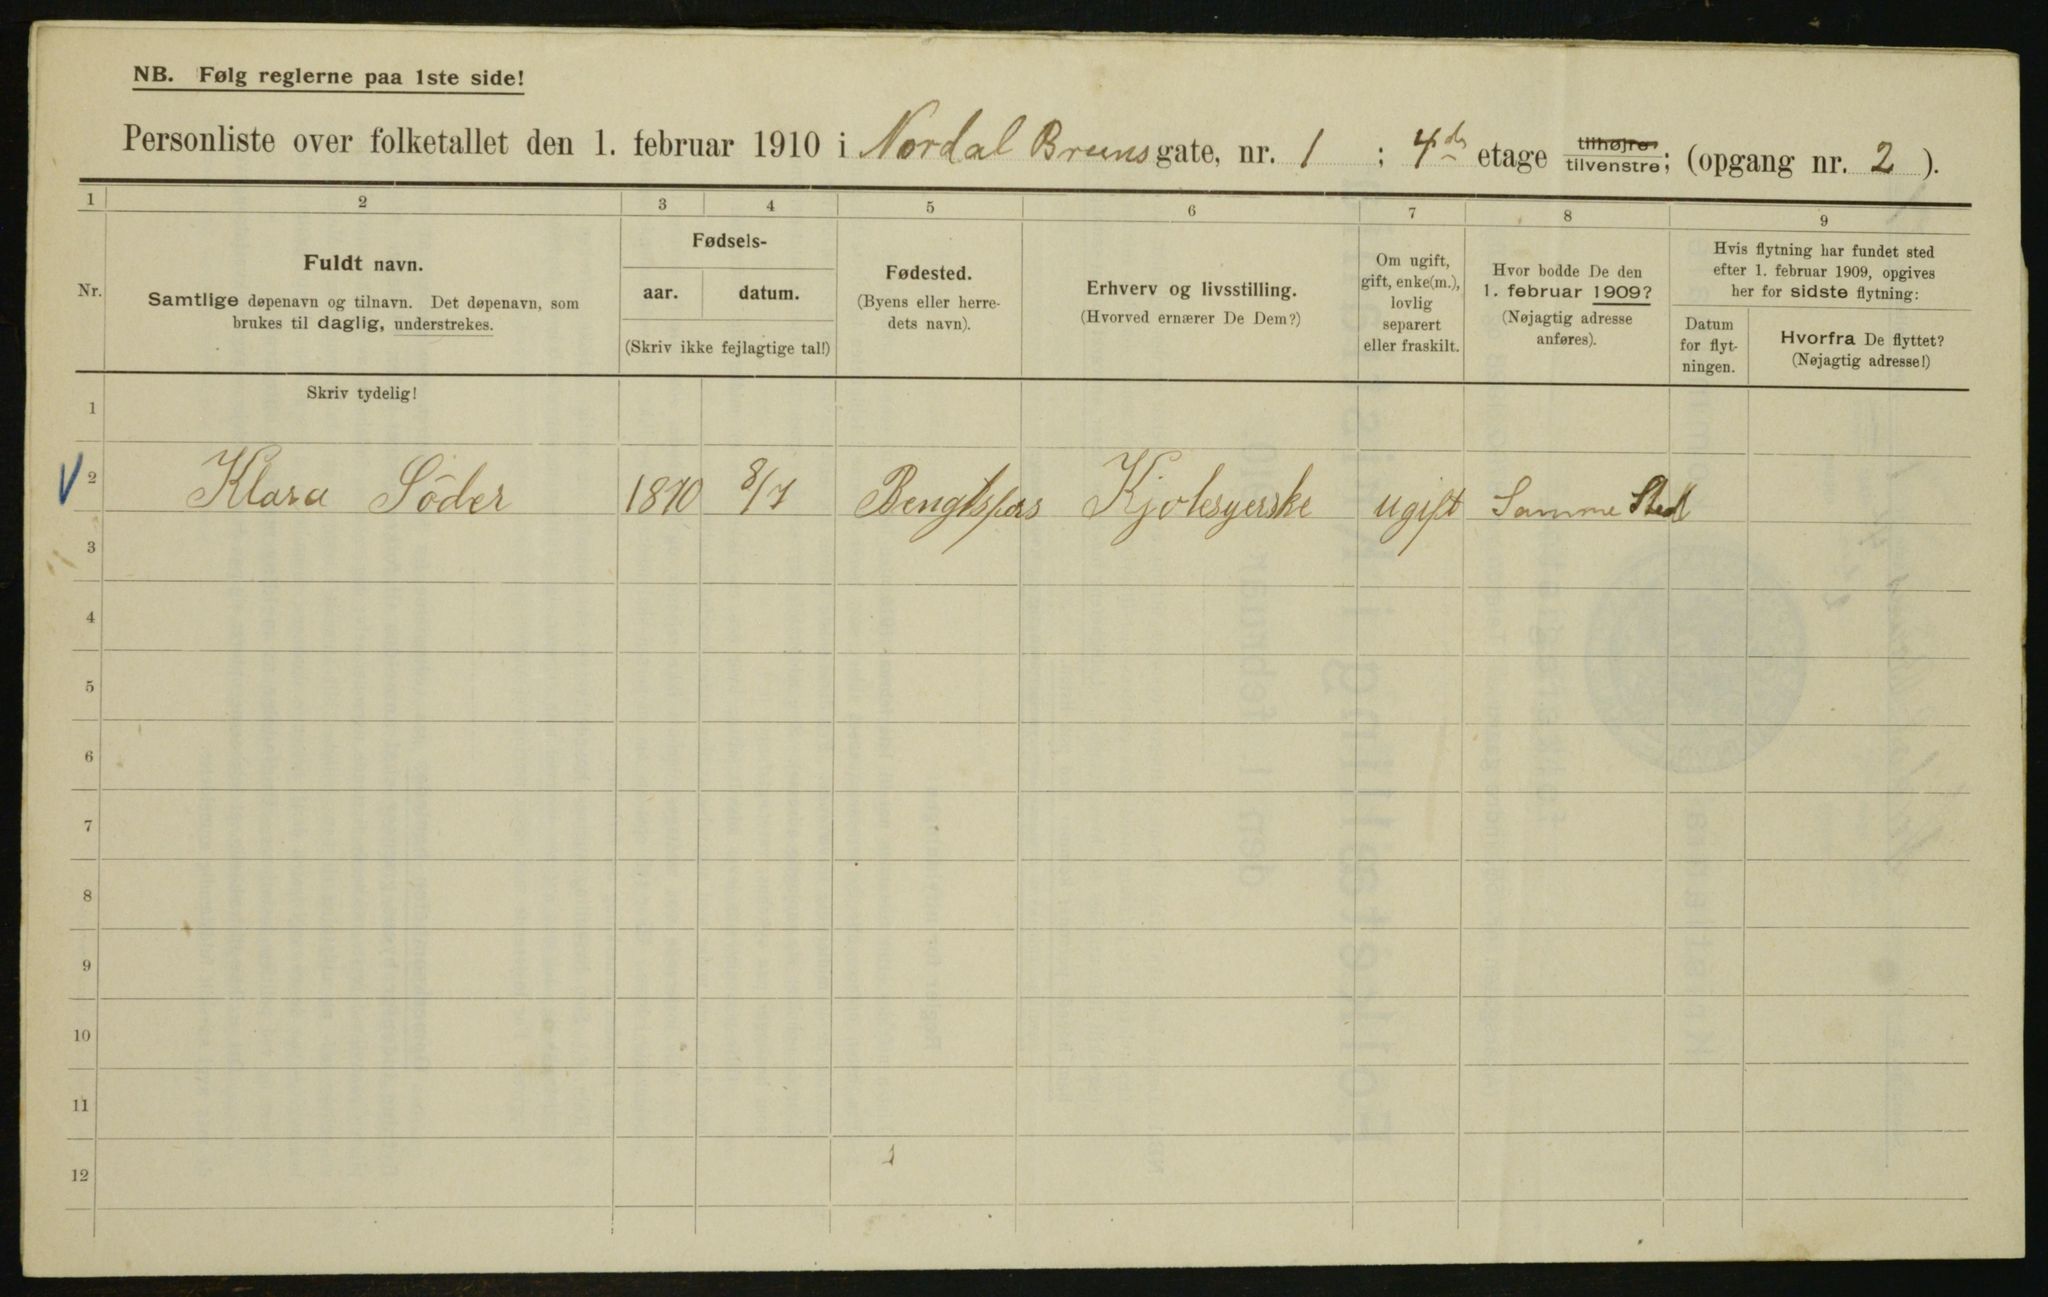 NB. Følg reglerne paa 1ste side!
Personliste over folketallet den 1. februar 1910 i Nordal Bruns gate, nr. 1 ; 4de etage tilhøjre tilvenstre; (opgang nr. 2 ).
1 2 3 4 5 6 7 8 9
Nr.
Fuldt navn.
Samtlige døpenavn og tilnavn. Det døpenavn, som
brukes til daglig, understrekes.
Fødsels-
aar. datum.
(Skriv ikke fejlagtige tal!)
Fødested.
(Byens eller herre-
dets navn).
Erhverv og livsstilling.
(Hvorved ernærer De Dem?)
Om ugift,
gift, enke(m.),
lovlig
separert
eller fraskilt.
Hvor bodde De den
1. februar 1909?
(Nøjagtig adresse
anføres).
Hvis flytning har fundet sted
efter 1. februar 1909, opgives
her for sidste flytning:
Datum
for flyt-
ningen.
Hvorfra De flyttet?
(Nøjagtig adresse!)
Skriv tydelig!
1
2 Klara Söder 1870 8/7 Bengtsfors Kjolesyerske ugift Samme Sted
3
4
5
6
7
8
9
10
11
12